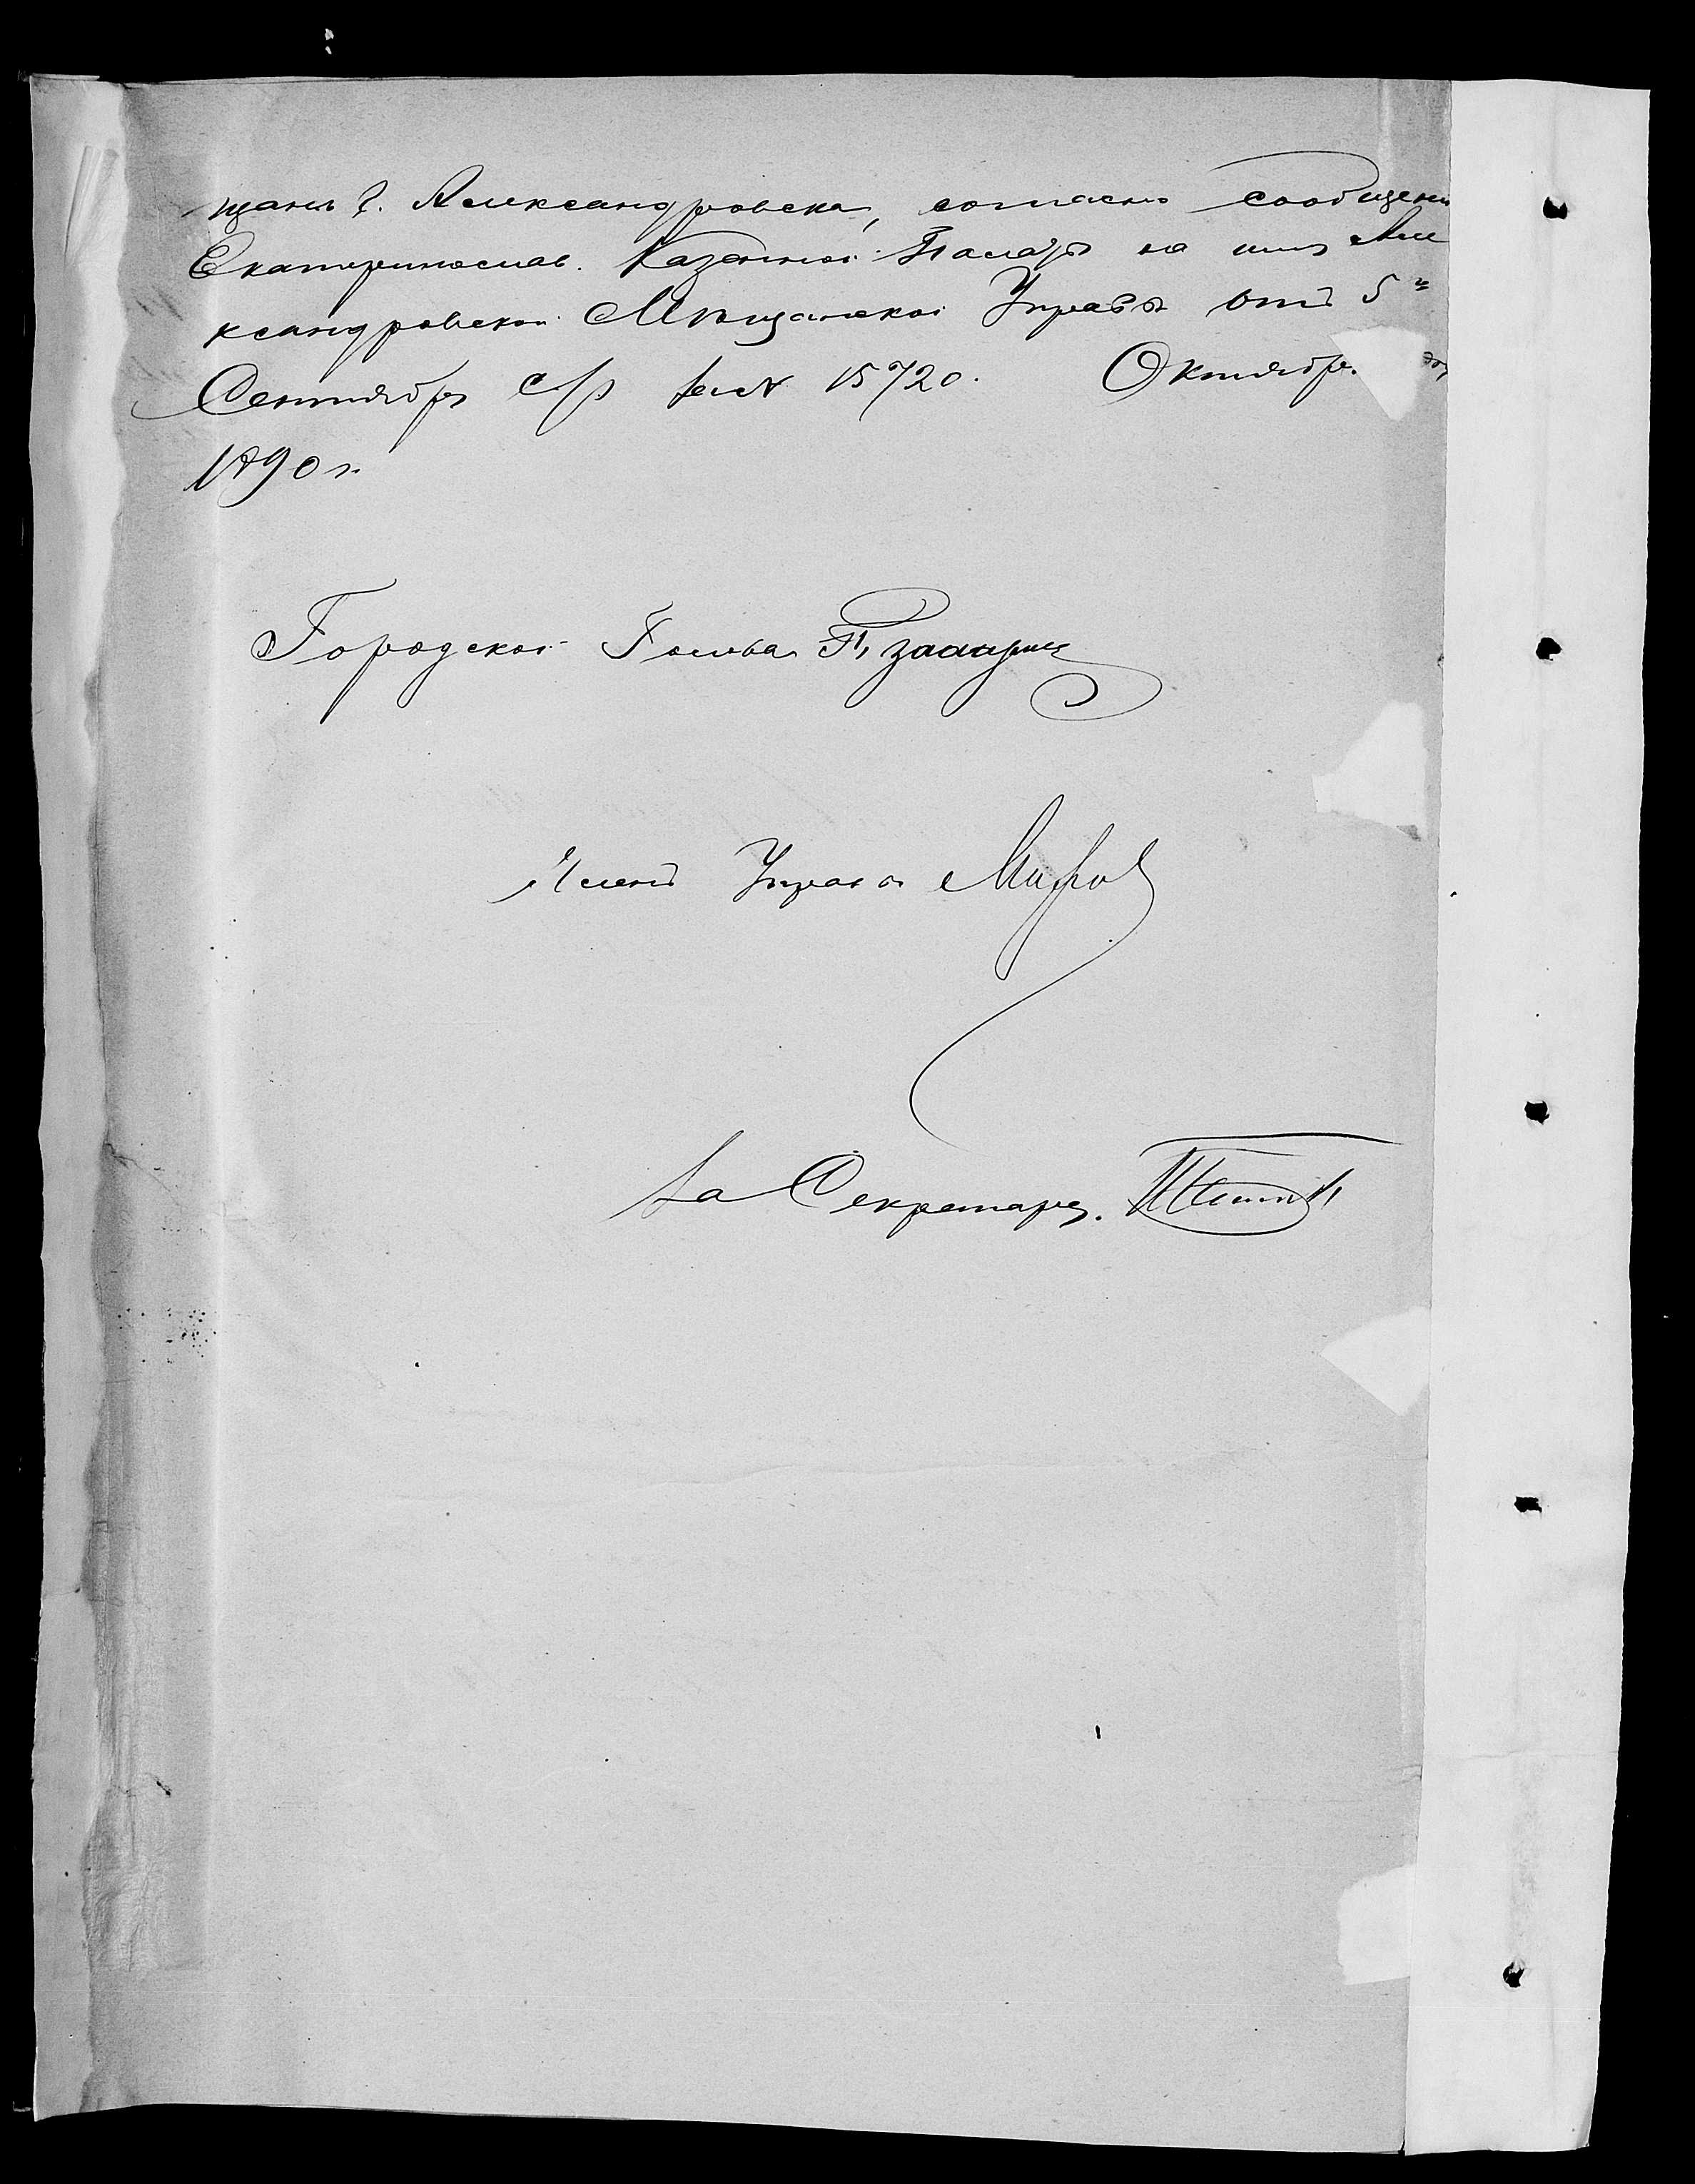 щанъ г. Александровска, согласно сообщенію
Екатеринослав. Казенной Палаты на имя Але
ксандровской Мѣщанской Управы отъ 5го
Сентября с/г за № 15720. Октября
1890 г.
Городской Голова
Членъ Управы
За Секретаря.